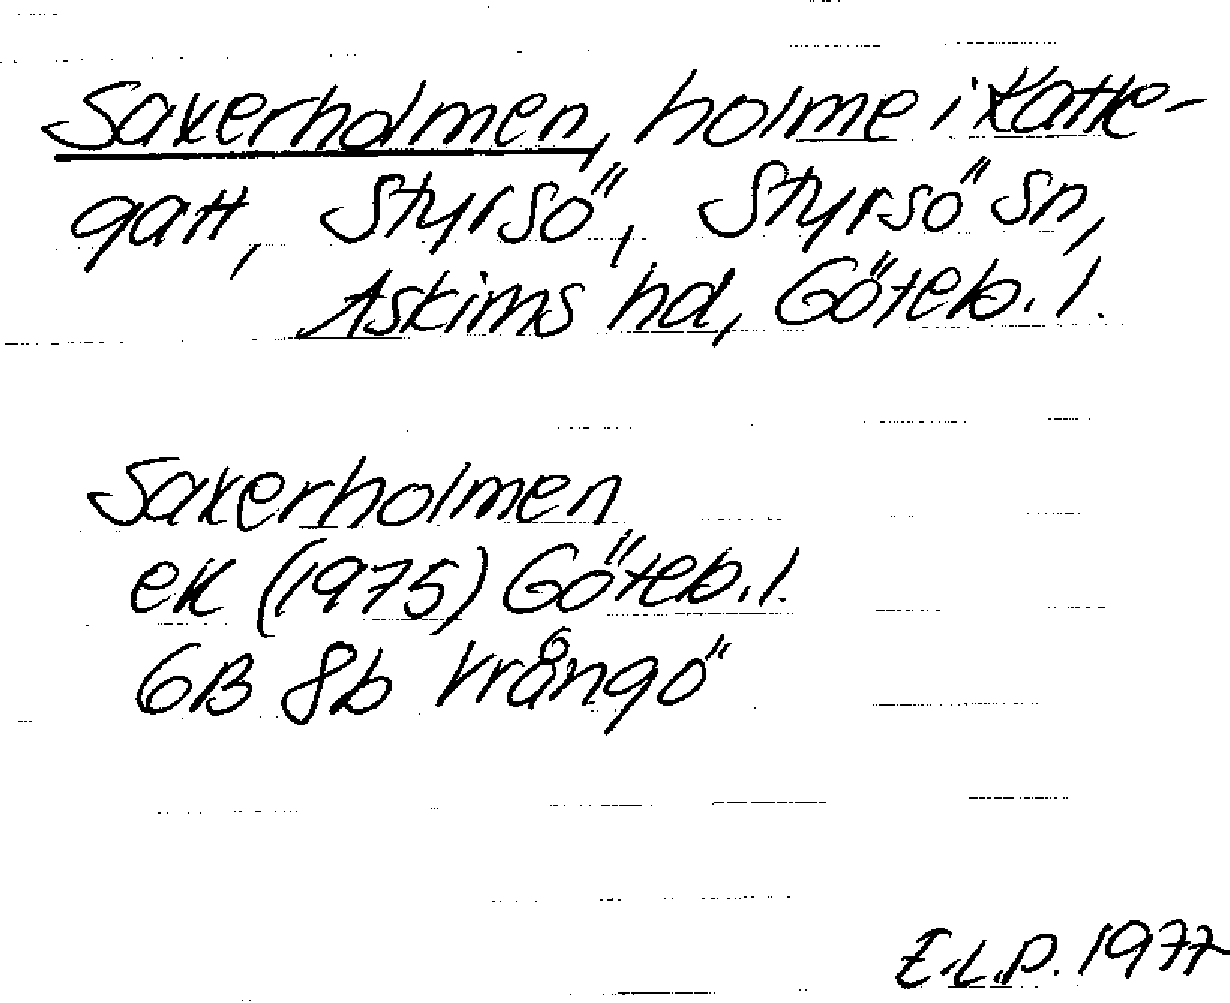 Saxerholmen, holme i Katte-
gatt, Styrsö, Styrsö sn,
Askims hd, Göteb. l.
Saxerholmen
ek (1975) Göteb. l.
6B 8b Vrångö
E.L.P. 1977